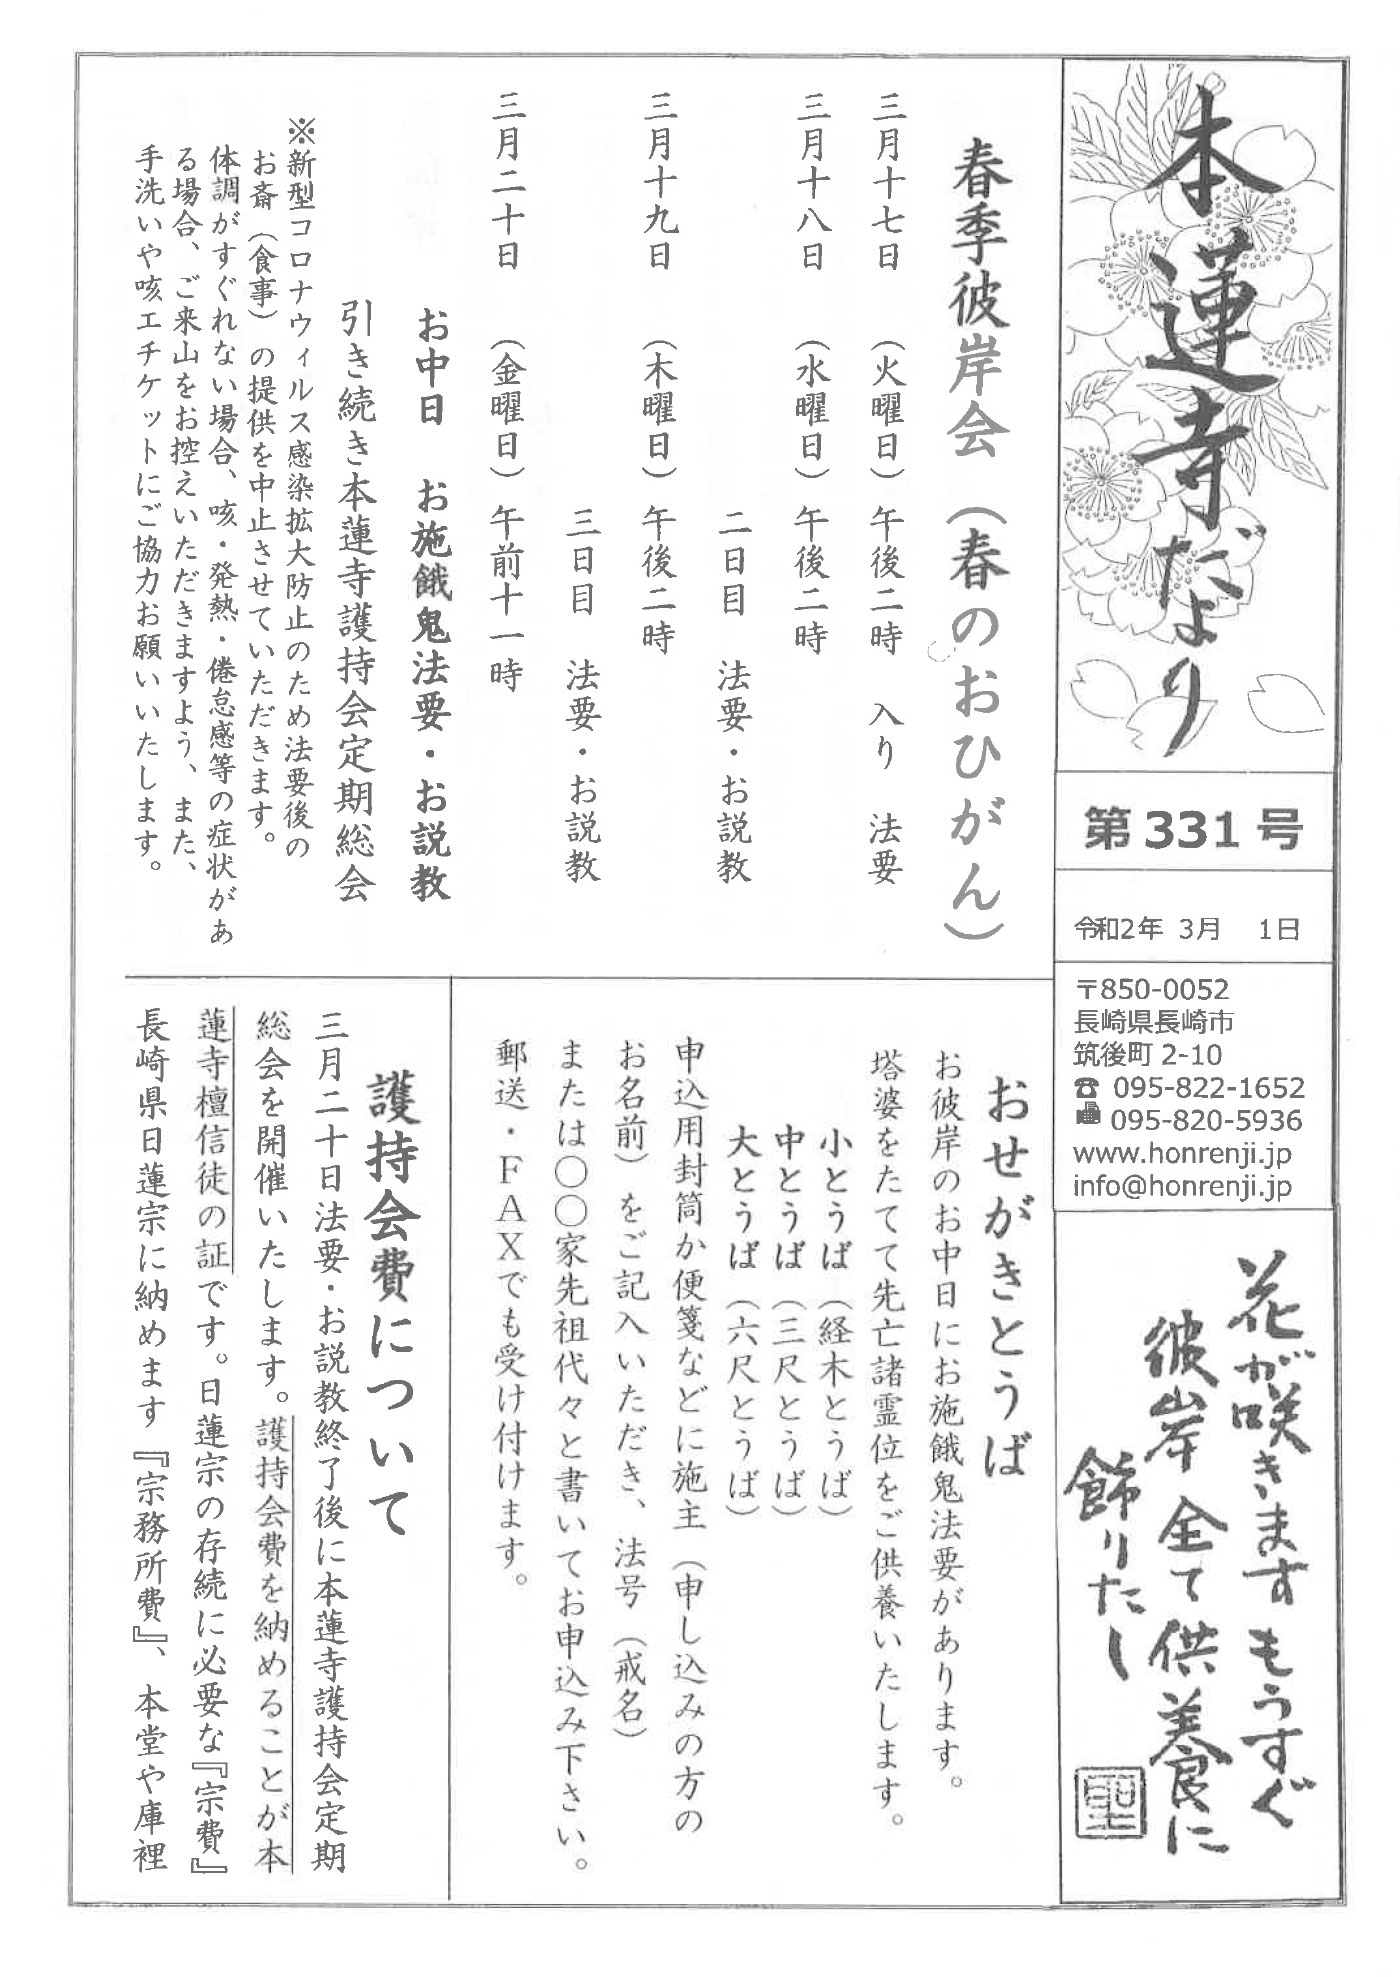 本蓮寺だより
第331号
令和2年 3月 1日
〒850-0052
長崎県長崎市
筑後町2-10
☎ 095-822-1652
095-820-5936
www.honrenji.jp
info@honrenji.jp
花が咲きます もうすぐ
彼岸 全て供養に
飾りたし
聖
春季彼岸会（春のおひがん）
三月十七日 （火曜日）午後二時 入り 法要
三月十八日 （水曜日）午後二時
二日目 法要・お説教
三月十九日 （木曜日）午後二時
三日目 法要・お説教
三月二十日 （金曜日）午前十一時
お中日 お施餓鬼法要・お説教
引き続き本蓮寺護持会定期総会
※新型コロナウィルス感染拡大防止のため法要後の
お斎（食事）の提供を中止させていただきます。
体調がすぐれない場合、咳・発熱・倦怠感等の症状があ
る場合、ご来山をお控えいただきますよう、また、
手洗いや咳エチケットにご協力お願いいたします。
おせがきとうば
お彼岸のお中日にお施餓鬼法要があります。
塔婆をたてて先亡諸霊位をご供養いたします。
小とうば（経木とうば）
中とうば（三尺とうば）
大とうば（六尺とうば）
申込用封筒か便箋などに施主（申し込みの方の
お名前）をご記入いただき、法号（戒名）
または〇〇家先祖代々と書いてお申込み下さい。
郵送・ＦＡＸでも受け付けます。
護持会費について
三月二十日法要・お説教終了後に本蓮寺護持会定期
総会を開催いたします。護持会費を納めることが本
蓮寺檀信徒の証です。日蓮宗の存続に必要な『宗費』
長崎県日蓮宗に納めます『宗務所費』、本堂や庫裡